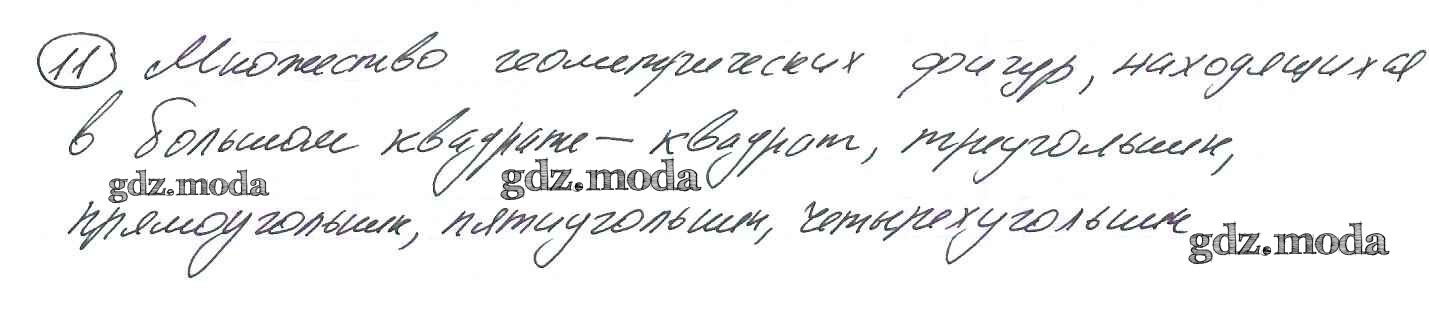 11 Множество геометрических фигур, находящихся
в большом квадрате – квадрат, треугольник,
gdz.moda gdz.moda
прямоугольник, пятиугольник, четырехугольник
gdz.moda